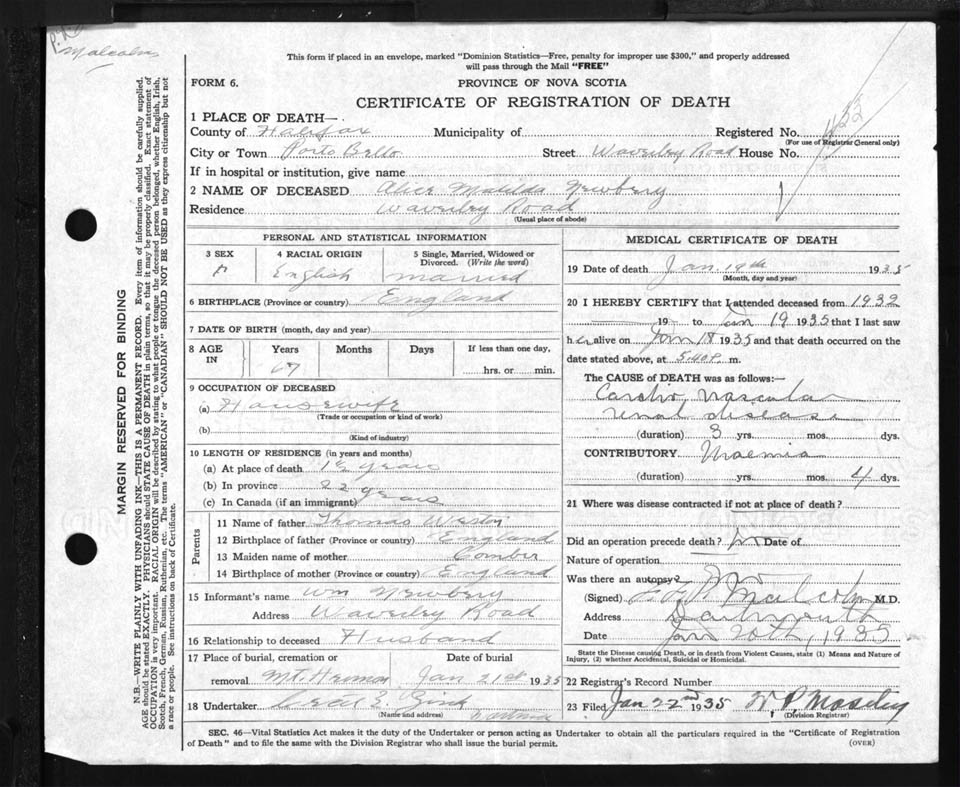 Malcolm
This form if placed in an envelope, marked "Dominion Statistics—Free, penalty for improper use $300," and properly addressed
will pass through the Mail "FREE"
FORM 6.
PROVINCE OF NOVA SCOTIA
CERTIFICATE OF REGISTRATION OF DEATH
1 PLACE OF DEATH—
County of Halifax Municipality of Registered No.
(For use of Registrar General only)
City or Town Porto Bello Street Waverley Road House No.
If in hospital or institution, give name
2 NAME OF DECEASED Alice Matilda Newbery
Residence Waverley Road
(Usual place of abode)
PERSONAL AND STATISTICAL INFORMATION
3 SEX 4 RACIAL ORIGIN 5 Single, Married, Widowed or
Divorced. (Write the word)
English married
6 BIRTHPLACE (Province or country) England
7 DATE OF BIRTH (month, day and year)
8 AGE IN Years Months Days If less than one day,
67 hrs. or min.
9 OCCUPATION OF DECEASED
(a) Housewife
(Trade or occupation or kind of work)
(b)
(Kind of industry)
10 LENGTH OF RESIDENCE (in years and months)
(a) At place of death years
(b) In province 22 years
(c) In Canada (if an immigrant)
Parents
11 Name of father Thomas Weston
12 Birthplace of father (Province or country) England
13 Maiden name of mother Comber
14 Birthplace of mother (Province or country) England
15 Informant's name Wm Newbery
Address Waverley Road
16 Relationship to deceased Husband
17 Place of burial, cremation or Date of burial
removal Mt. Hermon Jan 21st 1935
18 Undertaker
(Name and address)
MEDICAL CERTIFICATE OF DEATH
19 Date of death Jan 19th 1935
(Month, day and year)
20 I HEREBY CERTIFY that I attended deceased from 1932
19 to Jan 19 1935 that I last saw
her alive on Jan 18 1935 and that death occurred on the
date stated above, at 5.40 P. m.
The CAUSE OF DEATH was as follows:—
Cardio vascular
renal disease
(duration) 3 yrs. mos. dys.
CONTRIBUTORY Uraemia
(duration) yrs. mos. 4 dys.
21 Where was disease contracted if not at place of death?
Did an operation precede death? no Date of
Nature of operation
Was there an autopsy? No
(Signed) Malcolm M.D.
Address Dartmouth
Date Jan 20th, 1935
State the Disease causing Death, or in death from Violent Causes, state (1) Means and Nature of
Injury, (2) whether Accidental, Suicidal or Homicidal.
22 Registrar's Record Number
23 Filed Jan 22nd 1935
(Division Registrar)
SEC. 46—Vital Statistics Act makes it the duty of the Undertaker or person acting as Undertaker to obtain all the particulars required in the "Certificate of Registration
of Death" and to file the same with the Division Registrar who shall issue the burial permit.
(OVER)
MARGIN RESERVED FOR BINDING
N.B.—WRITE PLAINLY WITH UNFADING INK—THIS IS A PERMANENT RECORD. Every item of information should be carefully supplied.
AGE should be stated EXACTLY. PHYSICIANS should STATE CAUSE OF DEATH in plain terms, so that it may be properly classified. Exact statement of
OCCUPATION is very important. RACIAL ORIGIN will be described by stating to what people or tongue the deceased person belonged, whether English, Irish,
Scotch, French, German, Russian, Ruthenian, etc. The terms "AMERICAN" or "CANADIAN" SHOULD NOT BE USED as they express citizenship but not
a race or people. See instructions on back of Certificate.